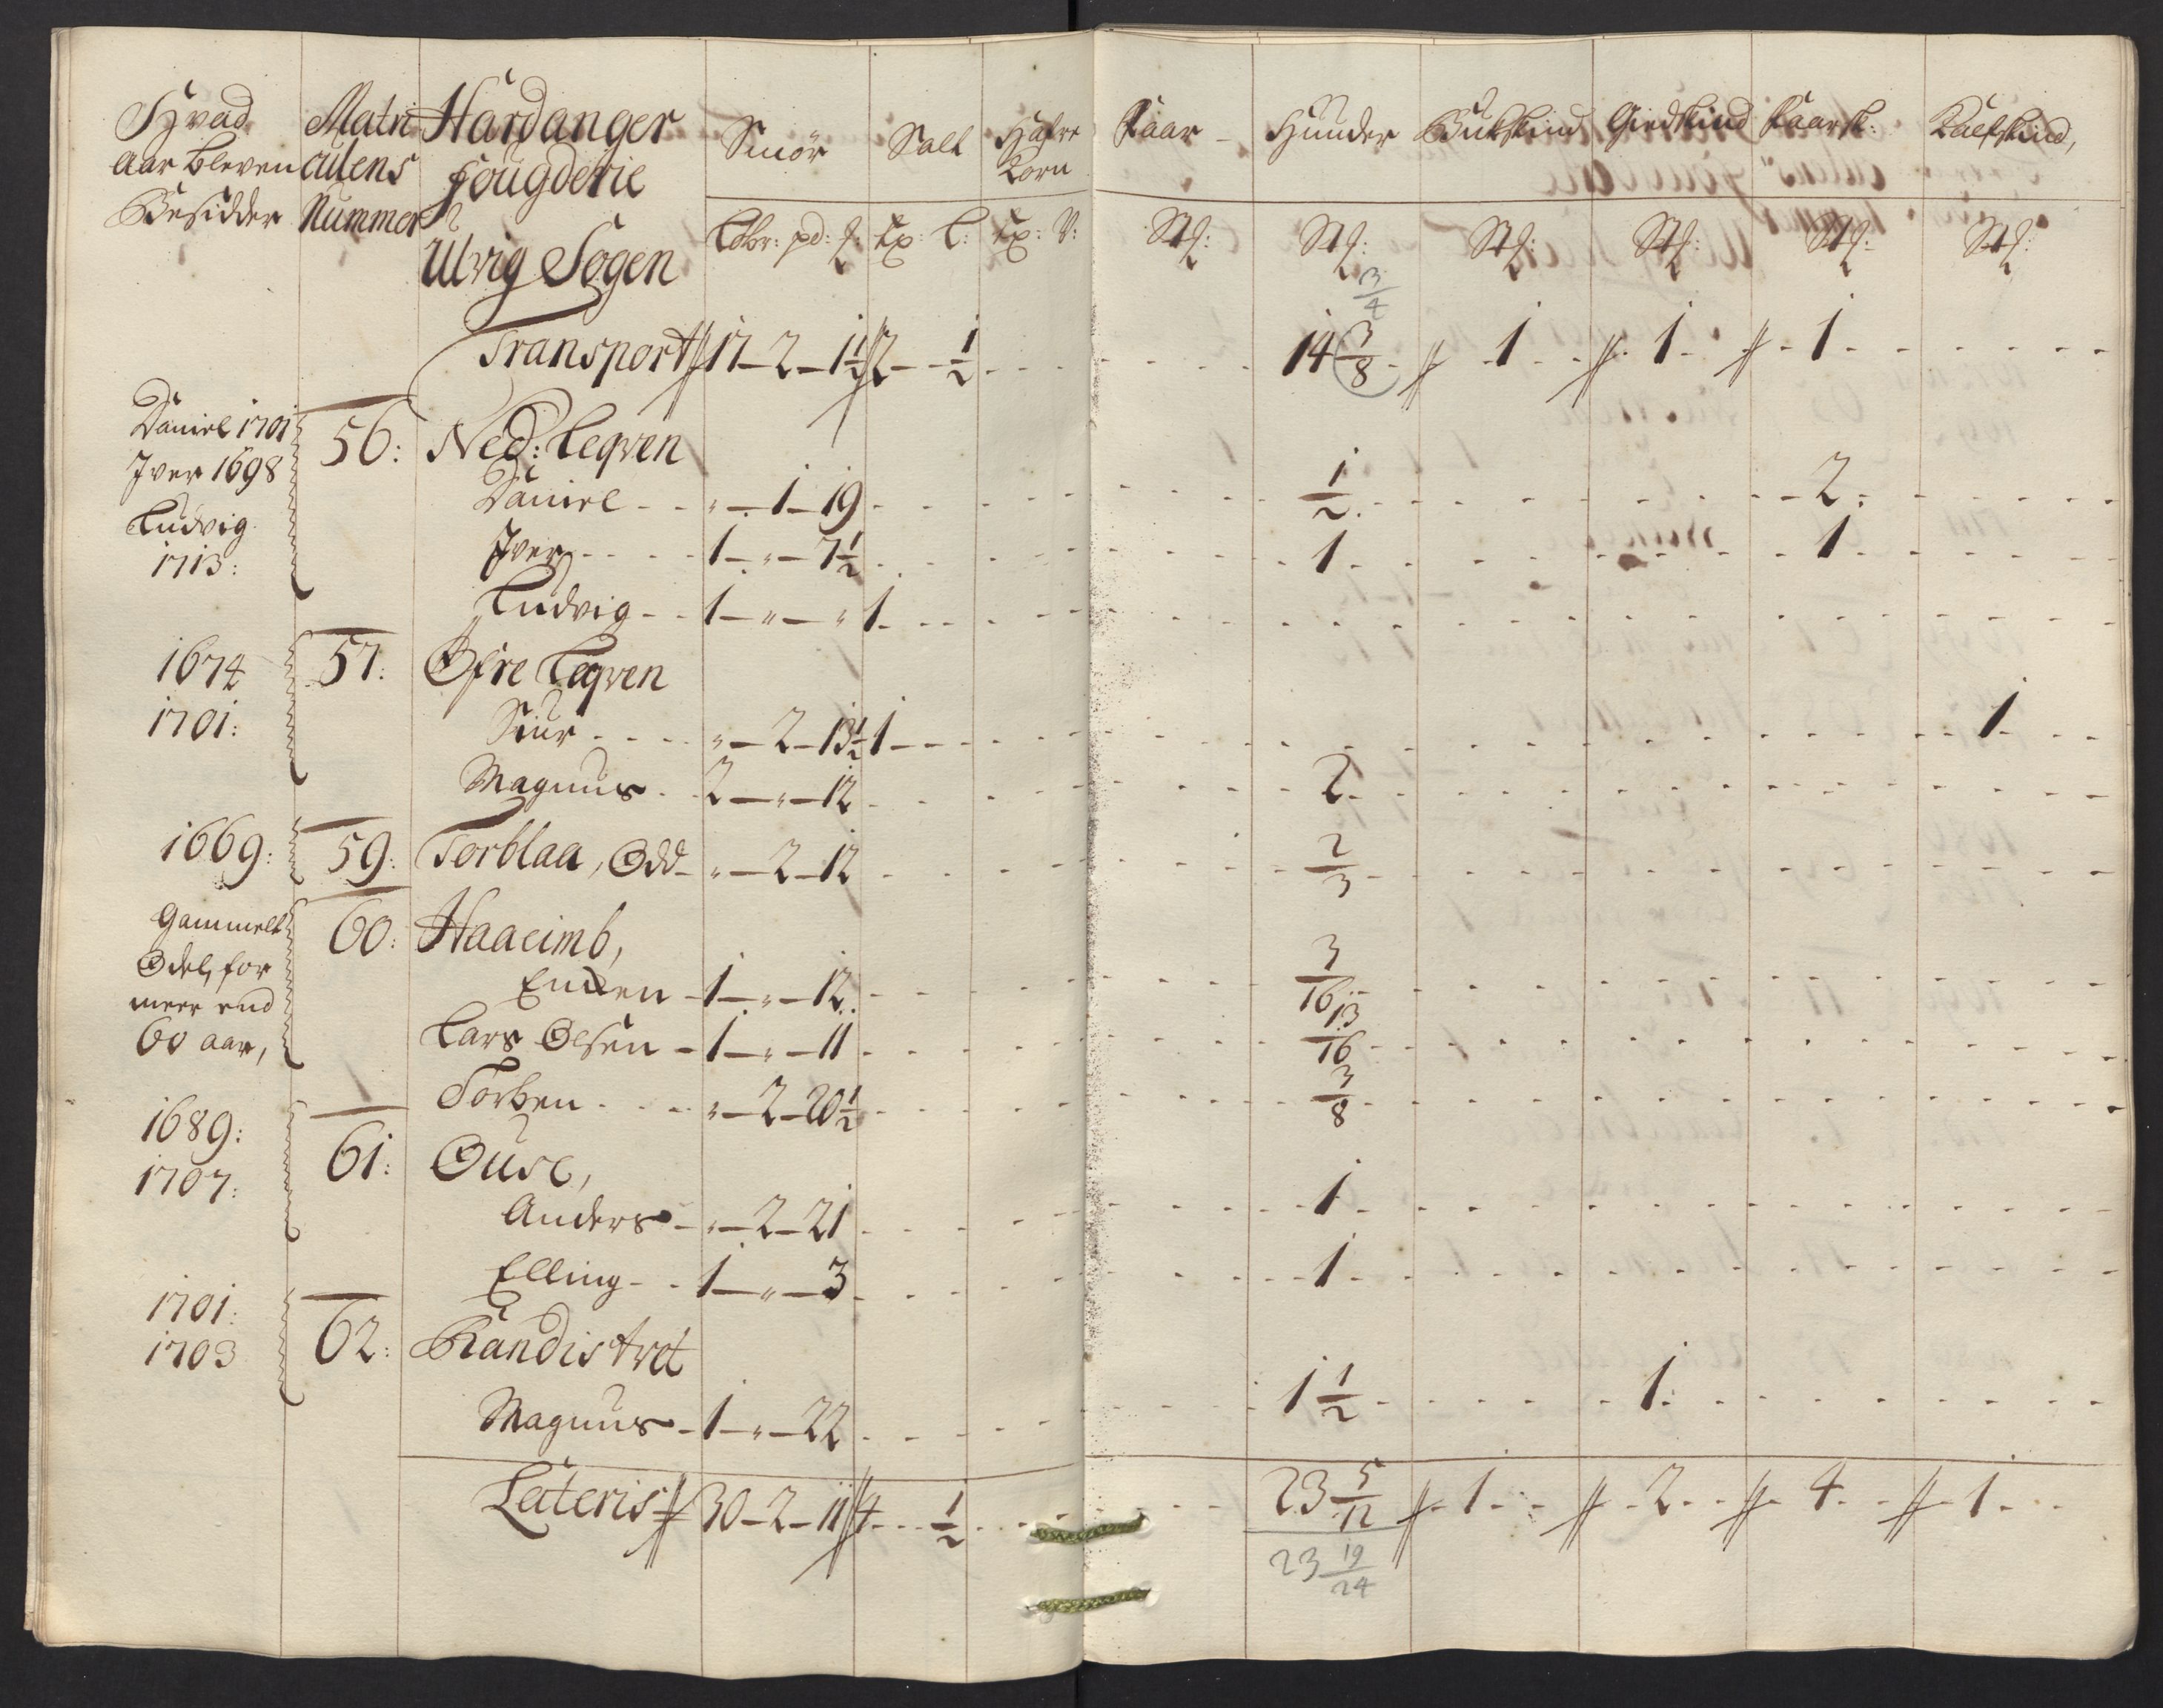 Hvad Matri Hardanger Smör Salt Hafre Faar Huuder Bukskind Giedskind Faarsk: Kalfskind,
Aar bleven culens fougderie Korn
Besidder Nummer
Ulvig Sogen Löbr: pd: Tp: Tp: V: St: St: St: St: St: St:
3/4
Transport 17 - 2 - 1 1/2 2 - 1/2 14 3/8 1 1 1
Daniel 1701 56: Ned: Leqven
Iver 1698 Daniel - - " - 1 - 19 1/2 2
Ludvig Iver - - - - 1 - " - 7 1/2 1 1
1713: Ludvig - - 1 - " - " 1
1674 57: Øfre Leqven
1701: Siur - - - " - 2 - 13 1/2 1 1
Magnus - - 2 - " - 12 2
1669: 59: Torblaa, Odd - " - 2 - 12 2/3
Gammelt 60: Haaeimb,
Odel, for Enken - 1 - " - 12 3/16
meer end Lars Olsen - 1 - " - 11 13/16
60 aar, Torben - - - " - 2 - 20 1/2 3/8
1689: 61: Ouse,
1707: Anders - " - 2 - 21 1
Elling - - 1 - " - 3 1
1701: 62: Randistvet
1703 Magnus - 1 - " - 22 1 1/2 1
Lateris 30 - 2 - 11 4 - - 1/2 23 5/12 1 2 4 1
23 19/24